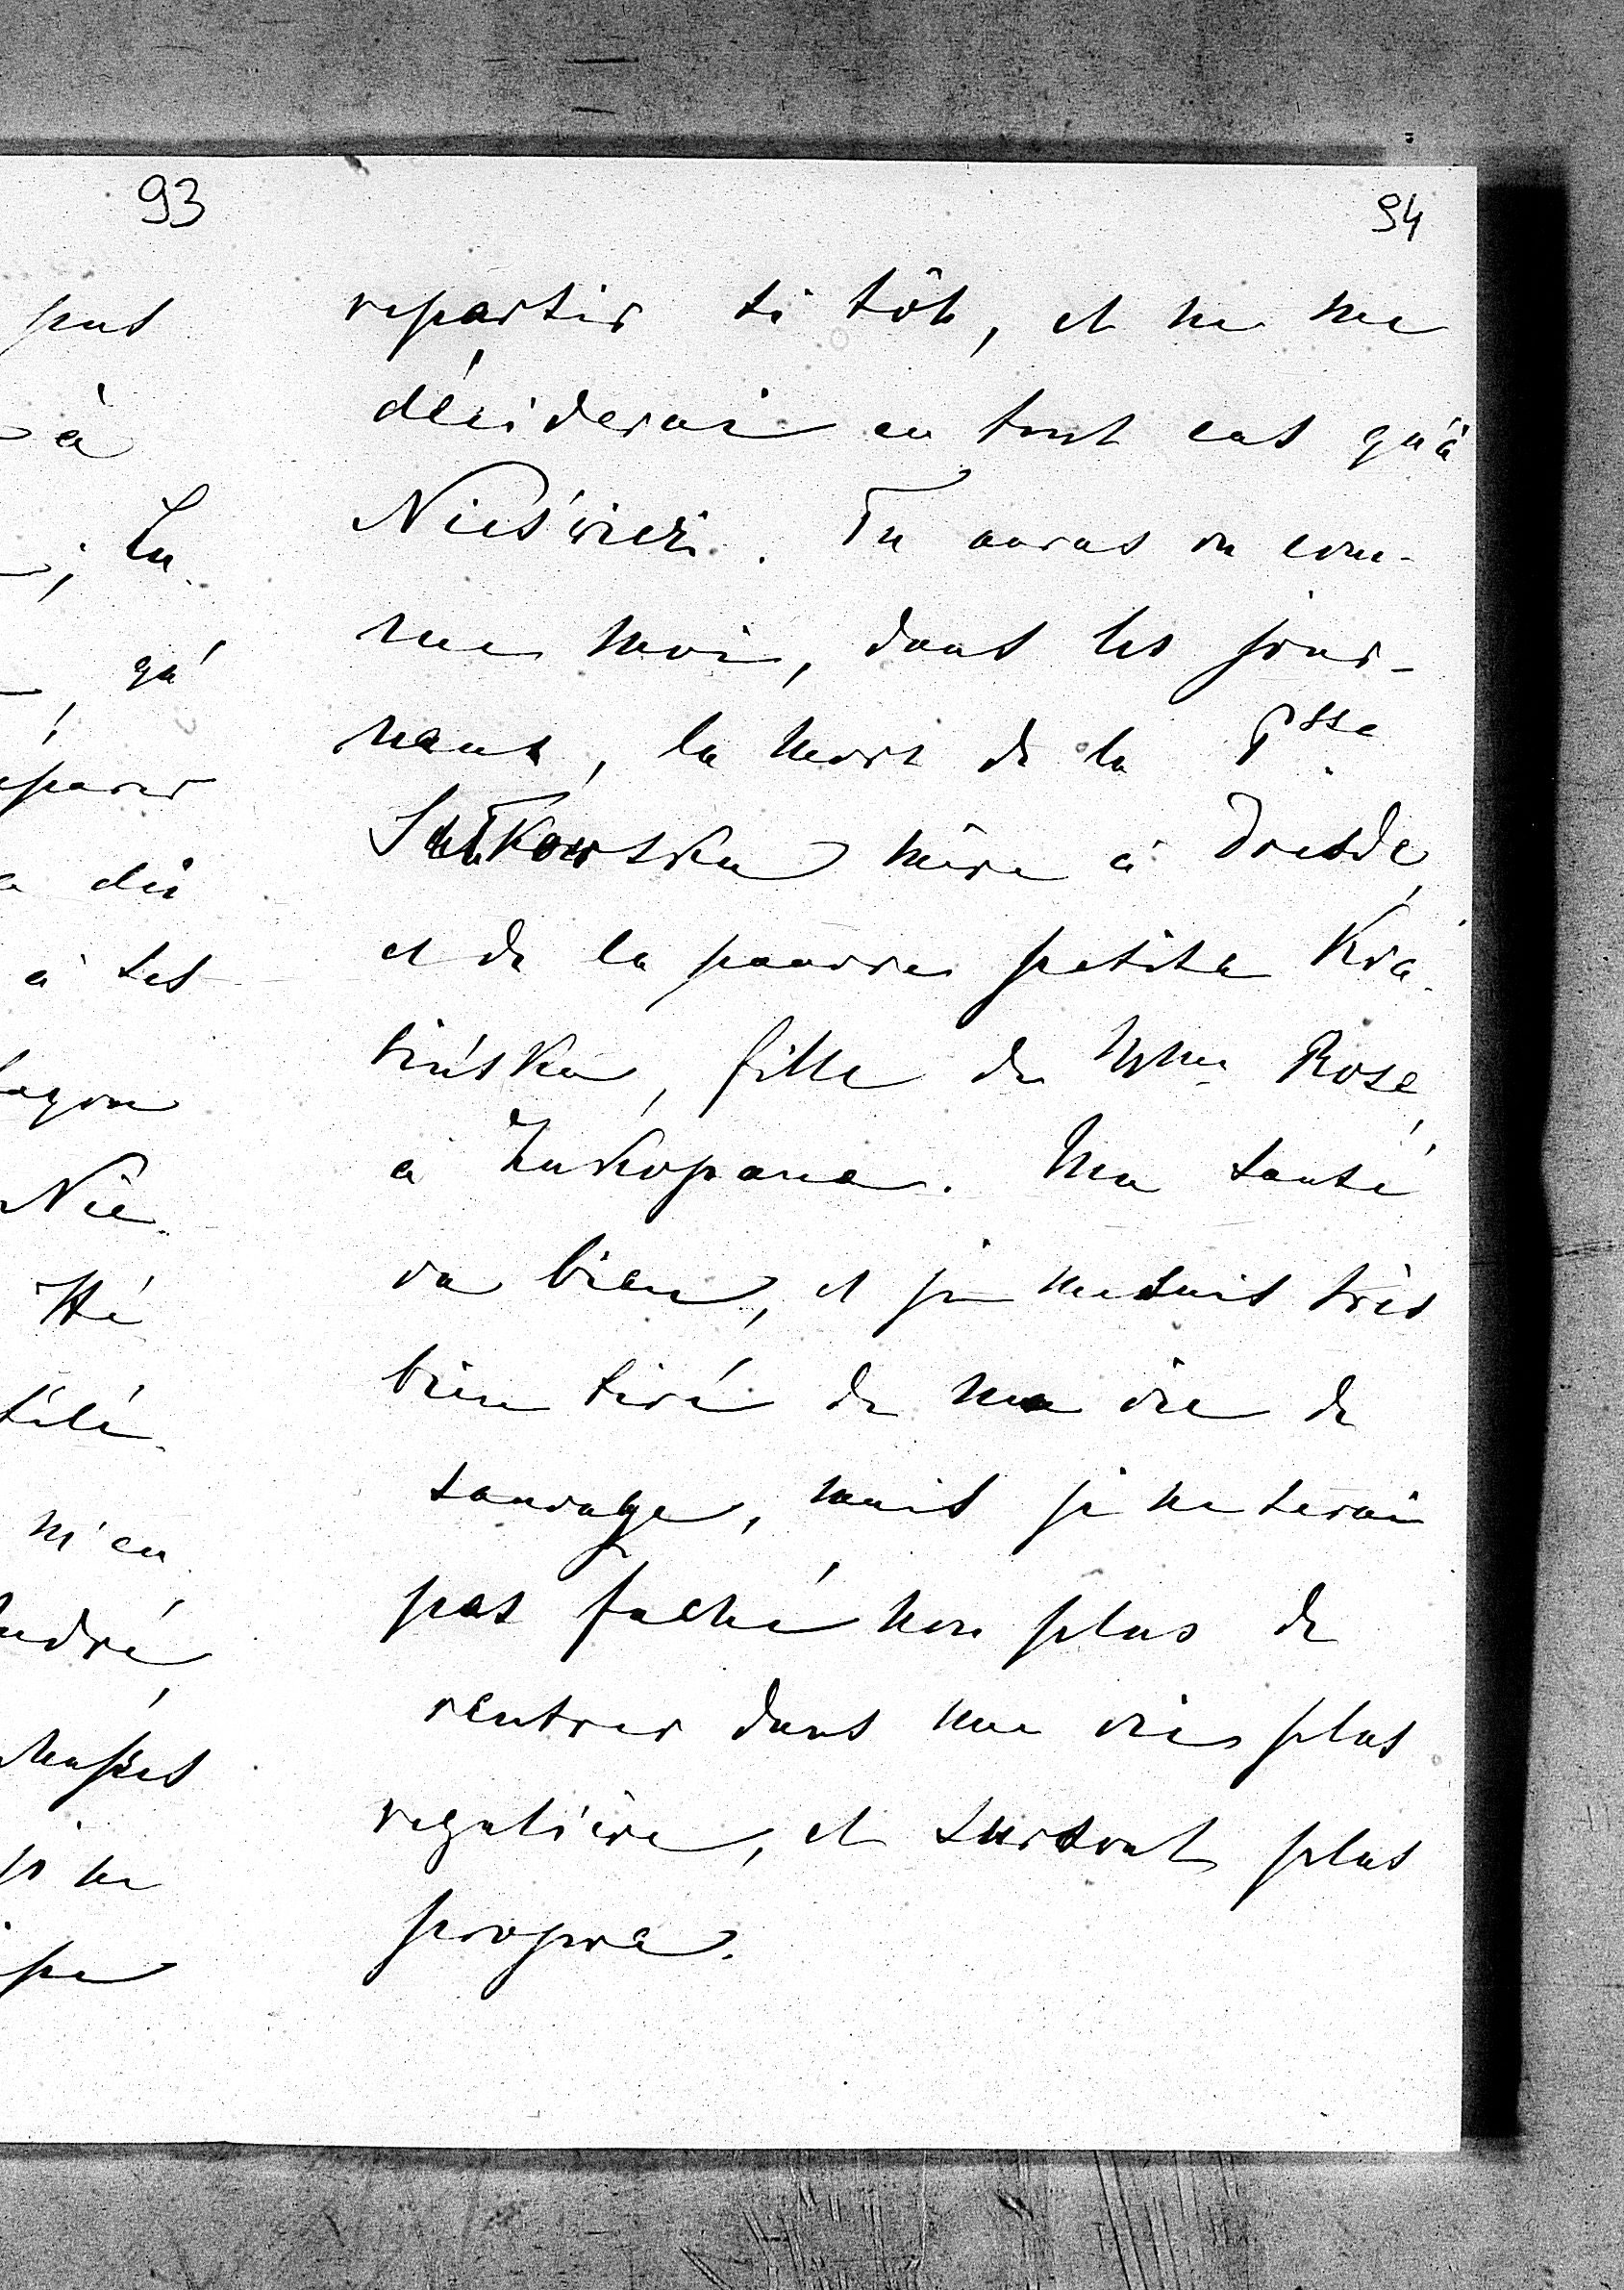 93
pas
à
; Tu
, qu'
dû
à ses
Nie-
Hé
télé-
m'en
je ne
94
repartir si tôt, et ne me
déciderai en tout cas qu'à
Nieśwież. Tu auras vu com-
me moi, dans les jour-
naux, la mort de la Psse
Sułkowska mère à Dresde,
et de la pauvre petite Kra-
sińska, fille de Mme Rose,
à Zakopane. Ma santé
va bien, et je me suis très
bien tiré de ma vie de
sauvage, mais je ne serai
pas faché non plus de
rentrer dans une vie plus
regulière, et surtout plus
propre.